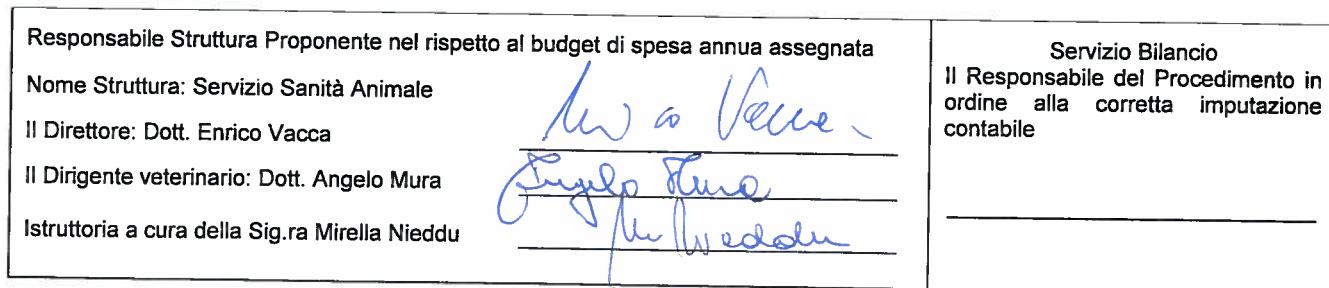 Responsabile Struttura Proponente nel rispetto al budget di spesa annua assegnata
Nome Struttura: Servizio Sanità Animale
Il Direttore: Dott. Enrico Vacca
Enrico Vacca
Il Dirigente veterinario: Dott. Angelo Mura
Angelo Mura
Istruttoria a cura della Sig.ra Mirella Nieddu
M Nieddu
Servizio Bilancio
Il Responsabile del Procedimento in
ordine alla corretta imputazione
contabile